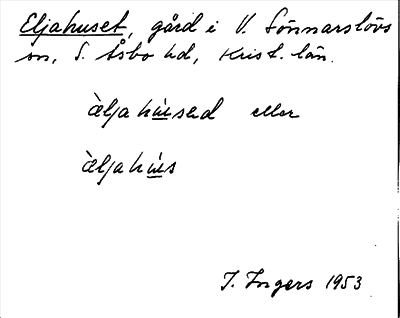 Eljahuset, gård i V. Sönnarslövs
sn, S. Åsbo hd, Krist. län.
àeljahúsed eller
àeljahús
I. Ingers 1953